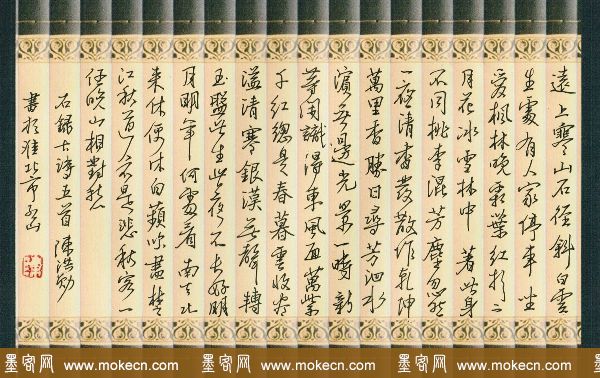 遠上寒山石徑斜白雲
生處有人家停車坐
愛楓林晚霜葉紅於二
月花冰雪林中著此身
不同桃李混芳塵忽然
一夜清香發散作乾坤
萬里春勝日尋芳泗水
濱無邊光景一時新
等閒識得東風面萬紫
千紅總是春暮雲收盡
溢清寒銀漢無聲轉
玉盤此生此夜不長好明
月明年何處看南去北
來休便休白蘋吹盡楚
江秋道人不是悲秋客一
任晚山相對愁
右錄古詩五首 陳浩
書於淮北市
墨客网 www.mokecn.com 墨客网 www.mokecn.com 墨客网 www.mokecn.com